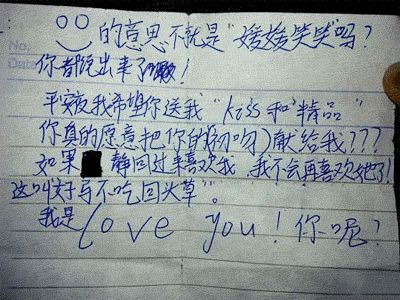 的意思不就是"媛媛笑笑"吗?
No.
Date
你都说出来了啦!
平安夜我希望你送我"kiss和"精品"
你真的愿意把你的(初吻)献给我???
如果 静回过来喜欢我,我不会再喜欢她了!
这叫好马不吃回头草"。
我是love you!你呢?